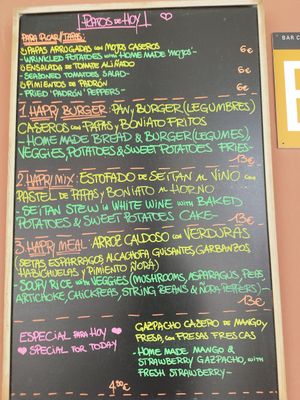 PLATOS DE HOY
PARA PICAR/TAPAS:
PAPAS ARRUGADAS CON MOJOS CASEROS
-WRINKLED POTATOES WITH HOME MADE "MOJOS"-
6€
ENSALADA DE TOMATE ALIÑADO
-SEASONED TOMATOES SALAD-
6€
PIMIENTOS DE PADRÓN
-FRIED "PADRÓN" PEPPERS-
6€
1. HAPPY BURGER: PAN Y BURGER (LEGUMBRES)
CASEROS CON PAPAS Y BONIATO FRITOS
-HOME MADE BREAD & BURGER (LEGUMES),
VEGGIES, POTATOES & SWEET POTATOES FRIES-
13€
2. HAPPY MIX: ESTOFADO DE SEITAN AL VINO CON
PASTEL DE PAPAS Y BONIATO AL HORNO
-SEITAN STEW in WHITE WINE WITH BAKED
POTATOES & SWEET POTATOES CAKE-
13€
3. HAPPY MEAL: ARROZ CALDOSO CON VERDURAS
(SETAS, ESPÁRRAGOS, ALCACHOFA, GUISANTES, GARBANZOS,
HABICHUELAS Y PIMIENTO ÑORA)
-SOUPY RICE WITH VEGGIES (MUSHROOMS, ASPARAGUS, PEAS
ARTICHOKE, CHICKPEAS, STRING BEANS & ÑORA PEPPERS)-
13€
ESPECIAL PARA HOY
SPECIAL FOR TODAY
GAZPACHO CASERO DE MANGO Y
FRESA, CON FRESAS FRESCAS
-HOME MADE MANGO &
STRAWBERRY GAZPACHO, WITH
FRESH STRAWBERRY-
4,00€
BAR C